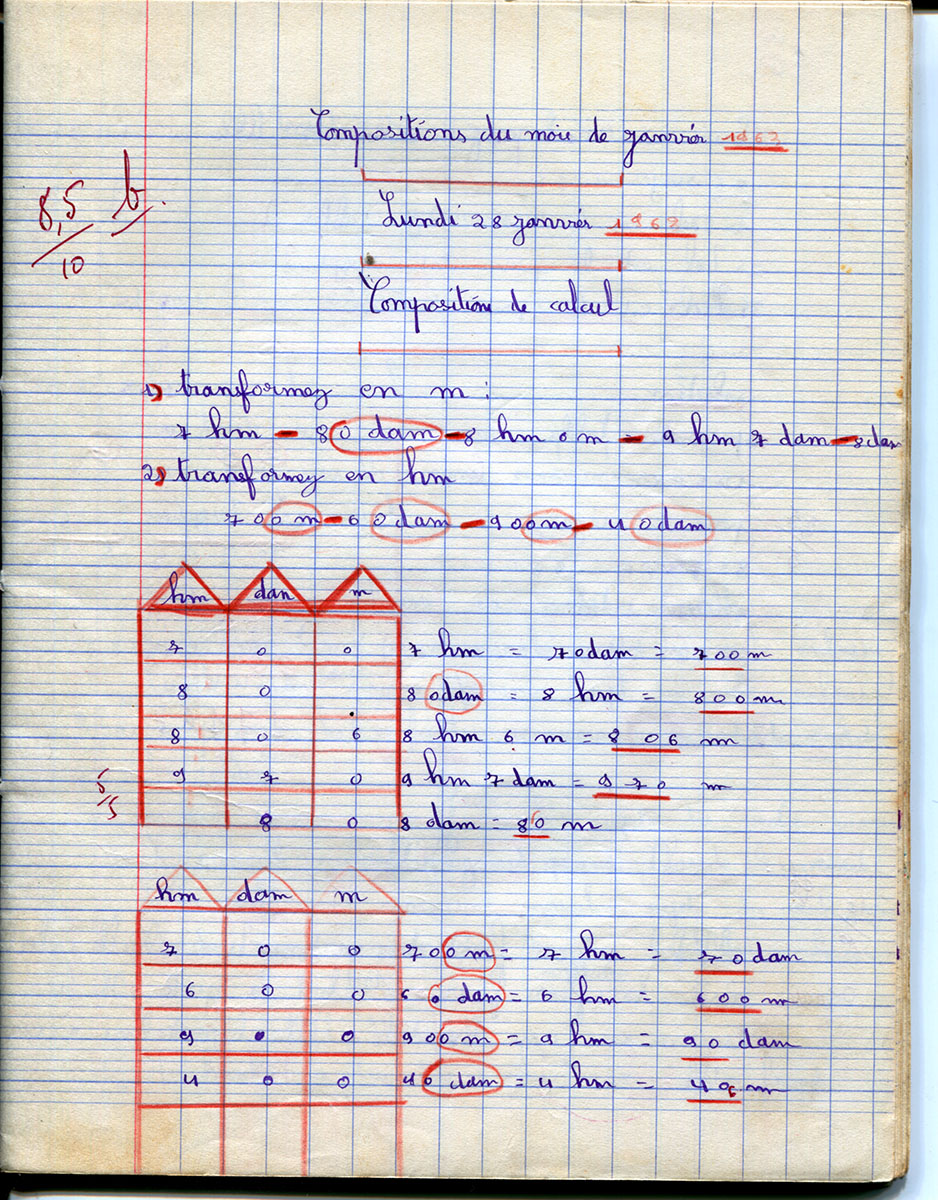 Compositions du mois de janvier 1963
8,5 b.
10
Lundi 28 janvier 1963
Composition de calcul
1) transformez en m :
7 hm - 80 dam - 8 hm 0 m - 9 hm 7 dam - 8 dam
2) transformez en hm
700 m - 60 dam - 900 m - 40 dam
hm dam m
7 0 0 7 hm = 70 dam = 700 m
8 0 80 dam = 8 hm = 800 m
8 0 6 8 hm 6 m = 806 m
9 7 0 9 hm 7 dam = 970 m
5/5
8 0 8 dam = 80 m
hm dam m
7 0 0 700 m = 7 hm = 70 dam
6 0 0 60 dam = 6 hm = 600 m
9 0 0 900 m = 9 hm = 90 dam
4 0 0 40 dam = 4 hm = 40 m